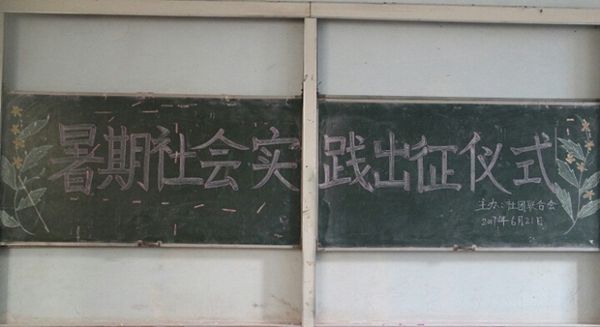 暑期社会实践出征仪式
主办：社团联合会
2017年6月21日